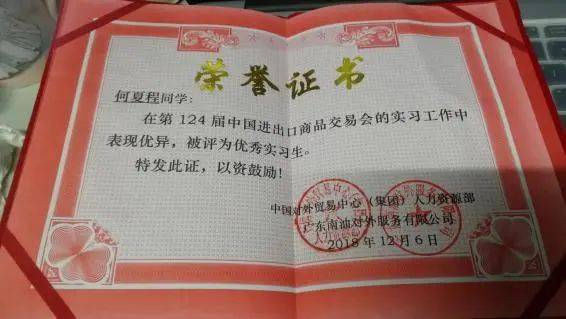 荣誉证书
何夏程同学：
在第124届中国进出口商品交易会的实习工作中
表现优异，被评为优秀实习生。
特发此证，以资鼓励！
中国对外贸易中心（集团）人力资源部
广东南油对外服务有限公司
2018年12月6日